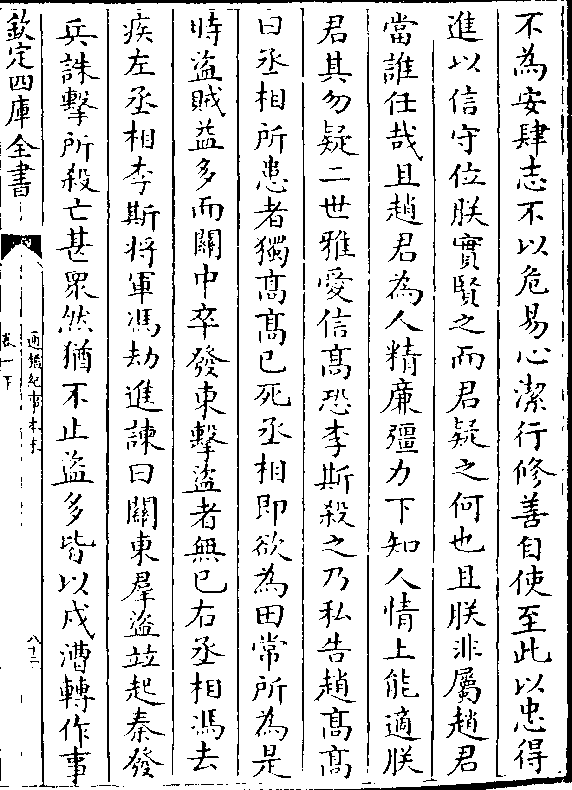 不為安肆志不以危易心潔行修善自使至此以忠得
進以信守位朕實賢之而君疑之何也且朕非屬趙君
當誰任哉且趙君為人精廉彊力下知人情上能適朕
君其勿疑二世雅愛信髙恐李斯殺之乃私告趙髙髙
曰丞相所患者獨髙髙已死丞相即欲為田常所為是
時盜賊益多而關中卒發東擊盜者無已右丞相馮去
疾左丞相李斯将軍馮劫進諫曰關東羣盜竝起秦發
兵誅擊所殺亡甚衆然猶不止盜多皆以戍漕轉作事
欽定四庫全書
通鑑紀事本末
卷一下
八十二